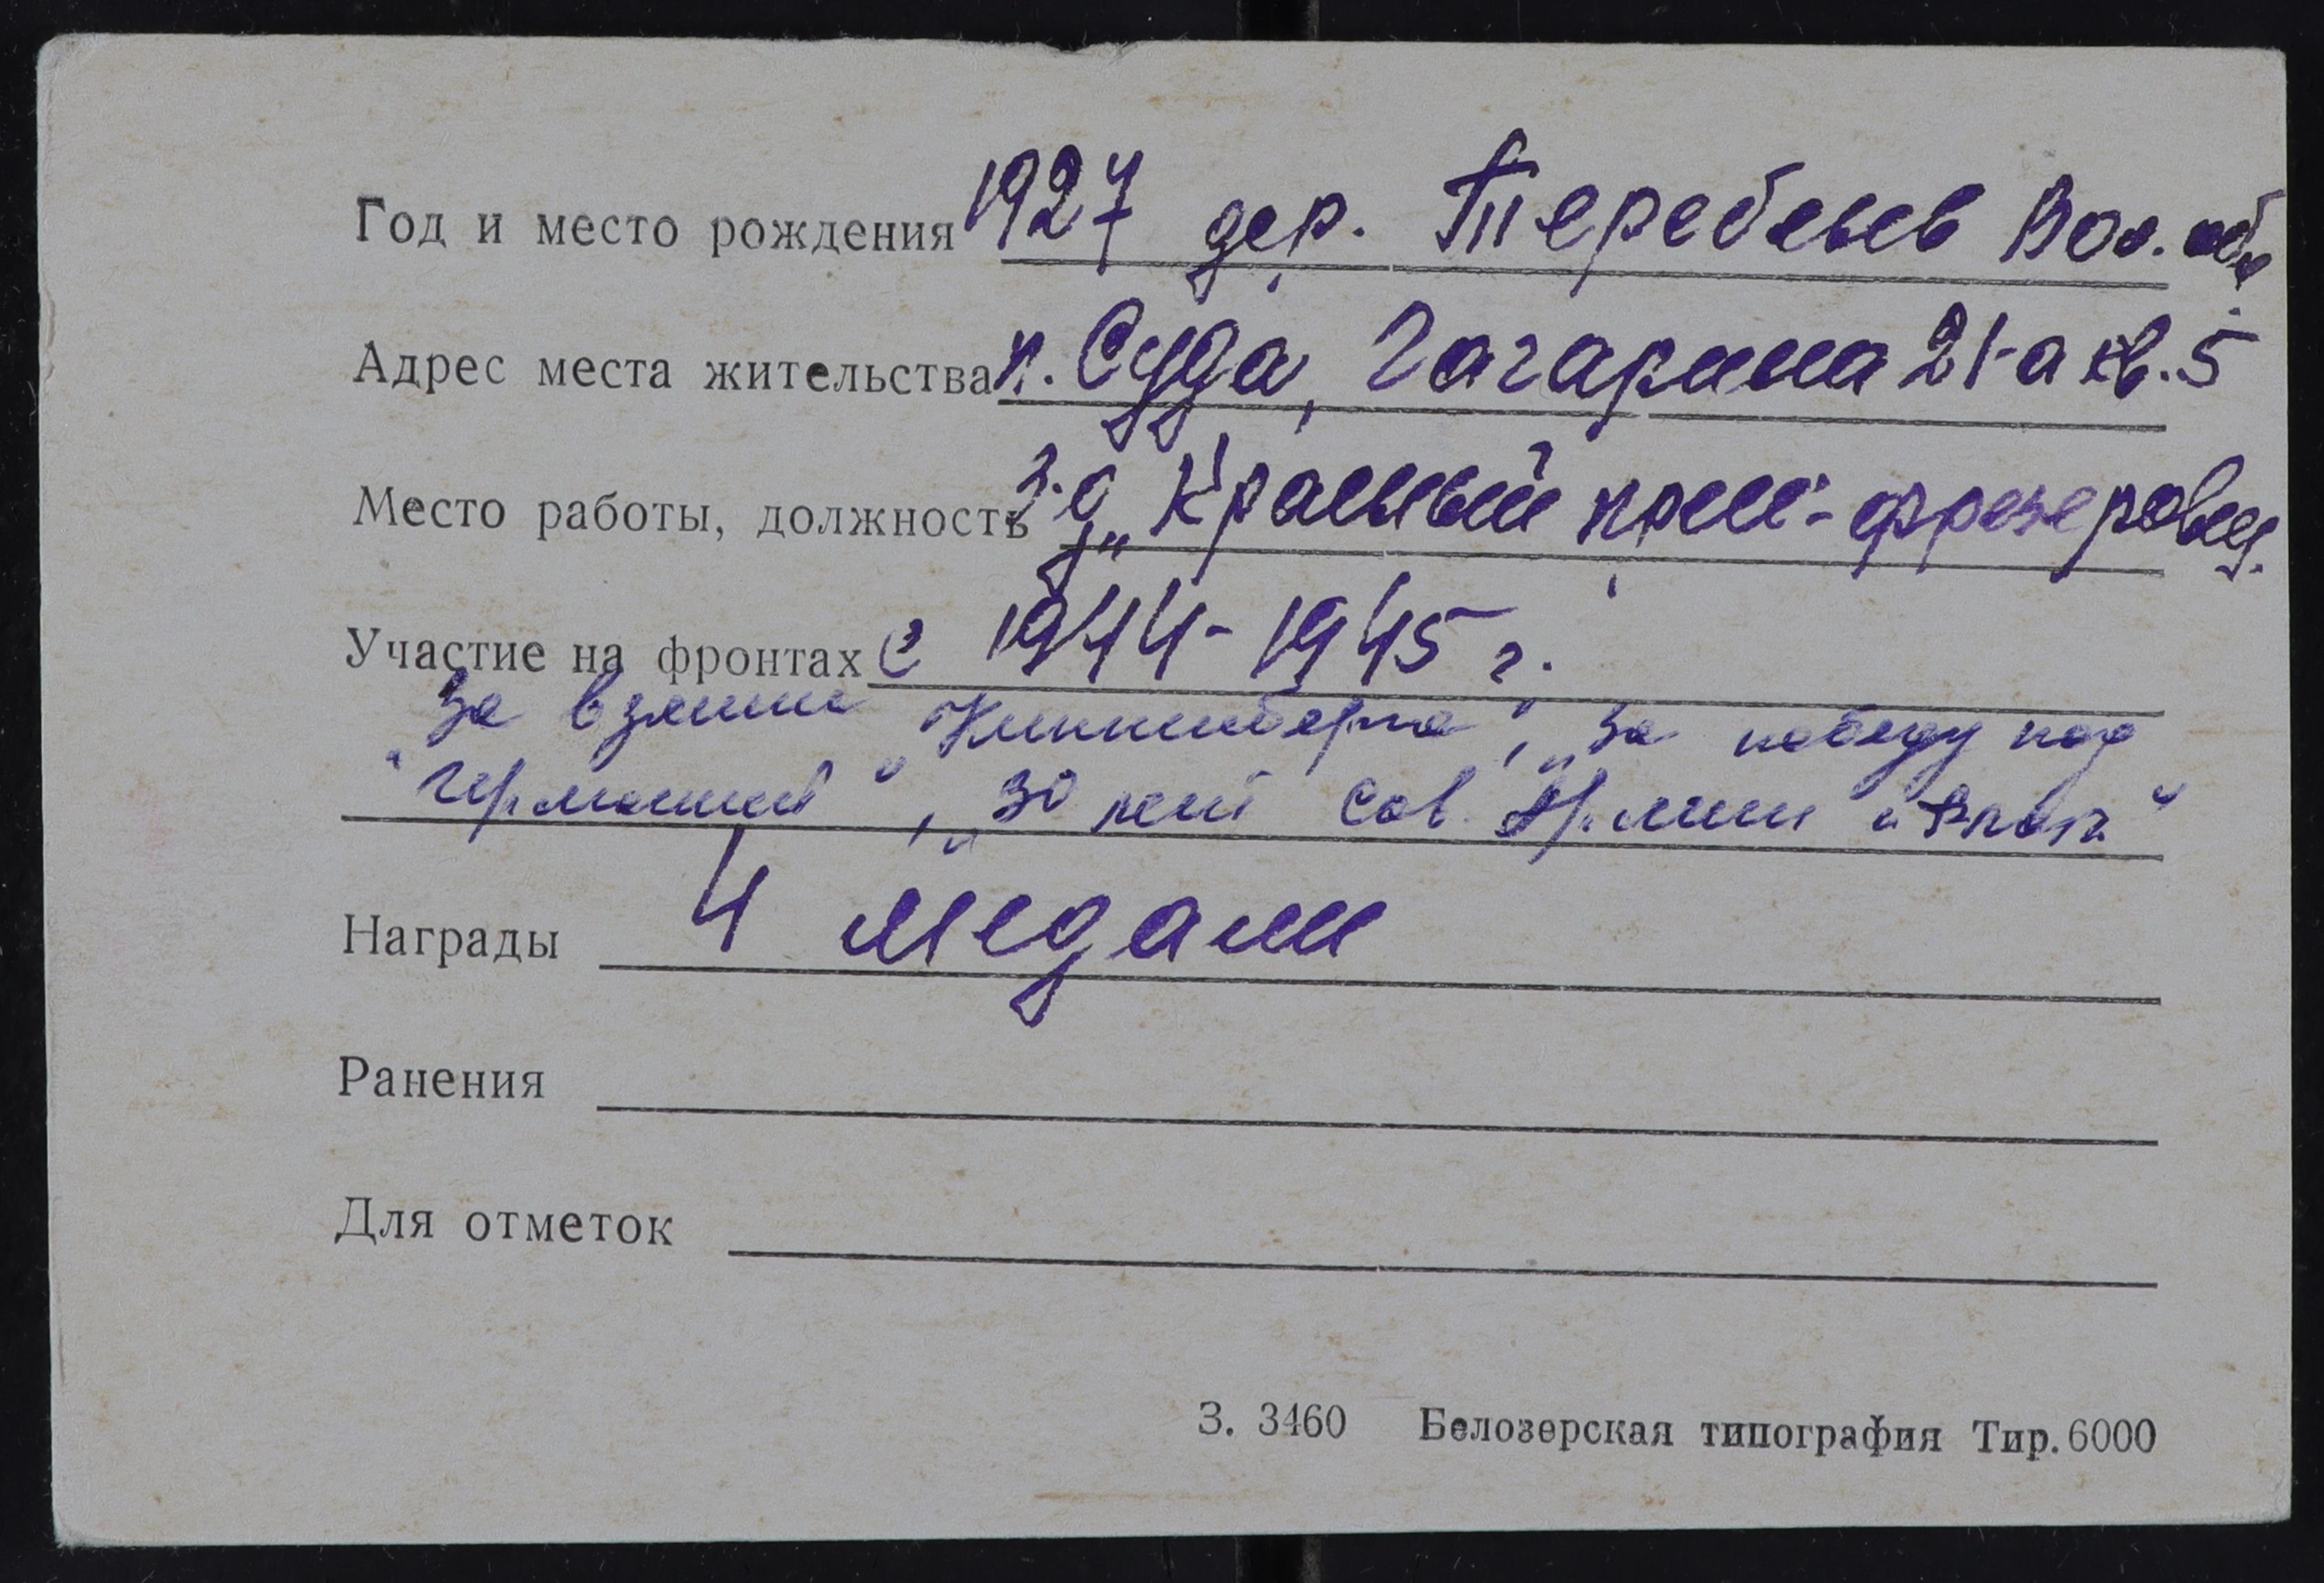 Год и место рождения 1927 дер. Теребаев Вол. обл.
Адрес места жительства п. Суда, Гагарина 21-а кв. 5
Место работы, должность з-д „Красный луч"- фрезеровщ.
Участие на фронтах с 1944-1945 г.
За взятие „Кенигсберга", „За победу над
Германией", „30 лет Сов. Армии и Флота"
Награды 4 медали
Ранения
Для отметок
З. 3460 Белозерская типография Тир. 6000